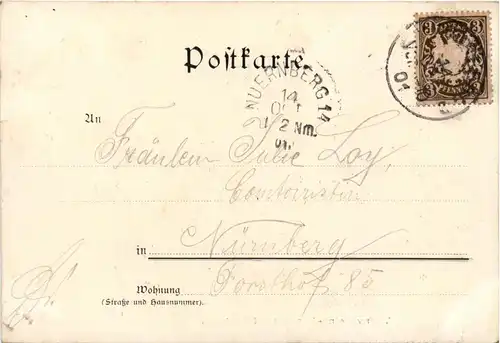 Postkarte.
NUERNBERG 14
14
OKT
1-2 Nm.
01.
3 3
An
Fräulein Julie Loy,
Comtoiristin
in Nürnberg
Wohnung Forsthof 85
(Straße und Hausnummer).